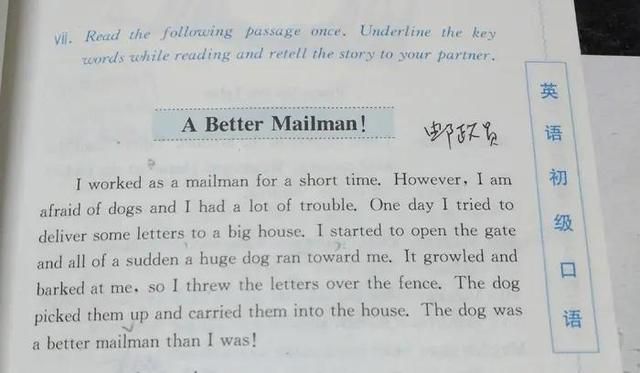 vii. Read the following passage once. Underline the key
words while reading and retell the story to your partner.
A Better Mailman!
邮政员
I worked as a mailman for a short time. However, I am
afraid of dogs and I had a lot of trouble. One day I tried to
deliver some letters to a big house. I started to open the gate
and all of a sudden a huge dog ran toward me. It growled and
barked at me, so I threw the letters over the fence. The dog
picked them up and carried them into the house. The dog was
a better mailman than I was!
英语初级口语